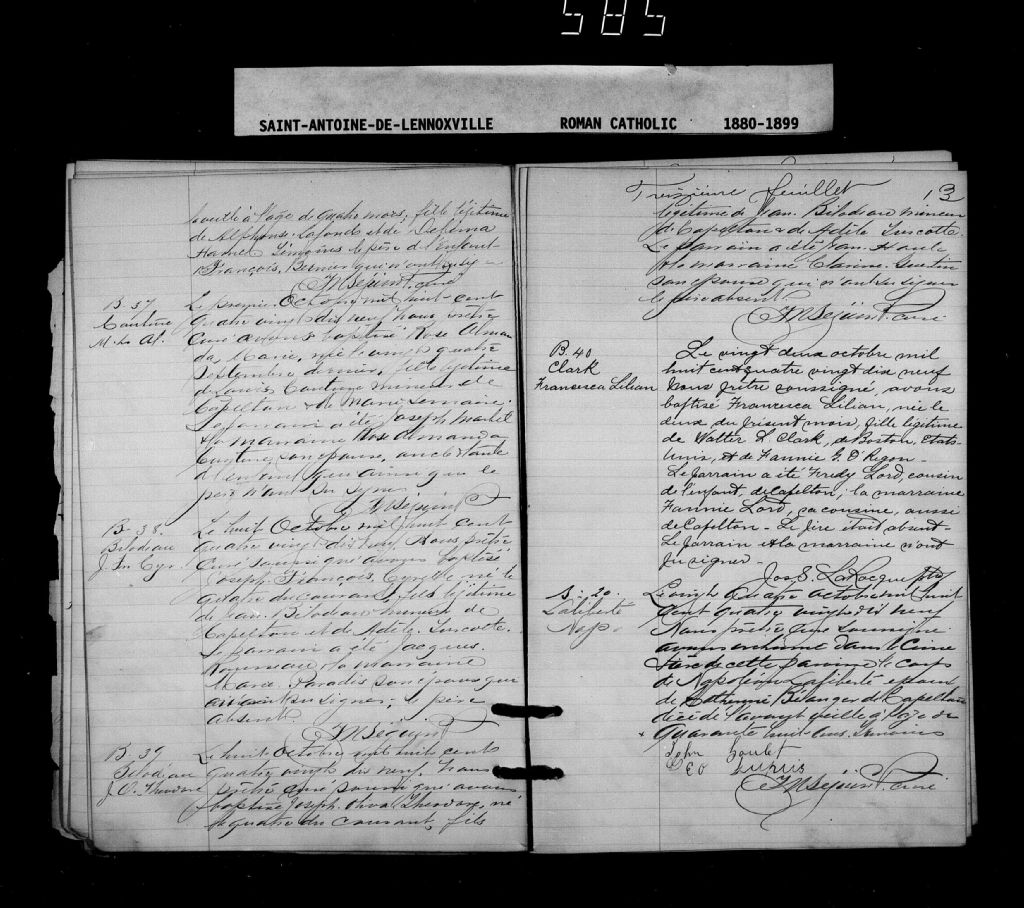 585
SAINT-ANTOINE-DE-LENNOXVILLE ROMAN CATHOLIC 1880-1899
à l'age de quatre mois, fille légitime
de Alphonse Lafond et de
Hamel Témoins le père de l'enfant
François, Bernier qui n'ont
curé
B 37
Couture
M. Ro Al.
Le premier Octobre mil huit cent
quatre vingt dix neuf nous prêtre
curé avons baptisé Rose Alman
da Marie, née le vingt quatre
Septembre dernier, fille légitime
de Louis Couture mineur de
Capelton & de Marie Lemaire.
Le parrain a été Joseph Martel
& la marraine Rose Almanda
Couture, son épouse, oncle & tante
de l'enfant, qui ainsi que le
père n'ont su signer
B- 38.
Bilodeau
J. Frs Cyr.
Le huit Octobre mil huit cent
quatre vingt dix neuf Nous prêtre
curé soussigné avons baptisé
Joseph, François, Cyrille né le
quatre du courant, fils légitime
de Jean Bilodeau mineur de
Capelton et de Adèle Turcotte.
Le parrain a été Jacques
Rousseau, la marraine
Marie Paradis son épouse qui
n'ont su signer, le père
absent
B 39
Bilodeau
J. O. Théodore
Le huit Octobre mil huit cent
quatre vingt dix neuf, Nous
prêtre curé soussigné avons
baptisé Joseph. Théodore, né
le quatre du courant, fils
Treizième feuillet 13
légitime de Jean Bilodeau mineur
de Capelton & de Adèle Turcotte.
Le parrain a été Jean
la marraine
son épouse qui n'ont su signer
le père absent.
curé
B. 40
Clark
Francesca Lilian
Le vingt deux octobre mil
huit cent quatre vingt dix neuf
nous prêtre soussigné, avons
baptisé Francesca Lilian, née le
deux du présent mois, fille légitime
de Walter L. Clark, de Boston, Etats-
Unis, et de Fannie G. O'Regan -
Le parrain a été Fredy Lord, cousin
de l'enfant, de Capelton; la marraine
Fannie Lord, sa cousine, aussi
de Capelton - Le père était absent -
Le parrain et la marraine n'ont
pu signer -
Jos. E. LaRocque ptre
S - 20.
Laliberté
Nap.
Le vingt quatre octobre mil huit
cent quatre vingt dix neuf
Nous prêtre curé soussigné
avons inhumé dans le cime
tière de cette paroisse le corps
de Napoléon Laliberté époux
de Catherine Bélanger de Capelton
décédé l'avant veille à l'age de
quarante huit ans. Témoins
John Goulet
Dupuis
curé